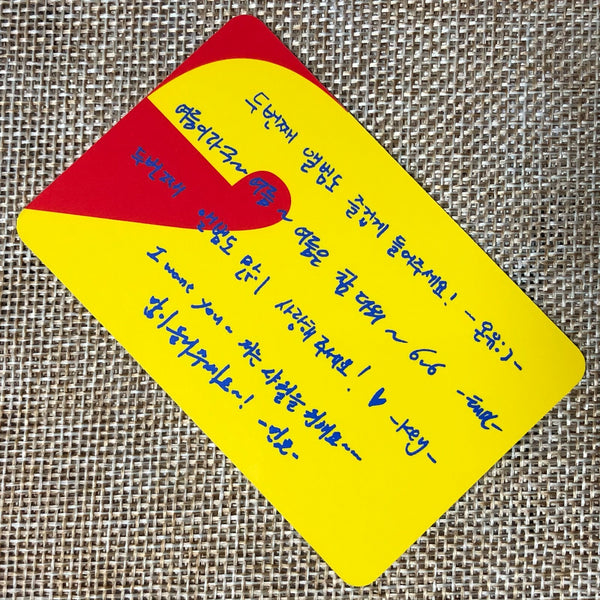 두번째 앨범도 즐겁게 들어주세요! -온유:)-
여름이라구~ 여름~ 여름은 참 더워~ 6.6 -태민-
두번째 앨범도 많이 사랑해주세요! ♥ -Key-
I want you~ 라는 사람을
많이 들어주세요~! -민호-